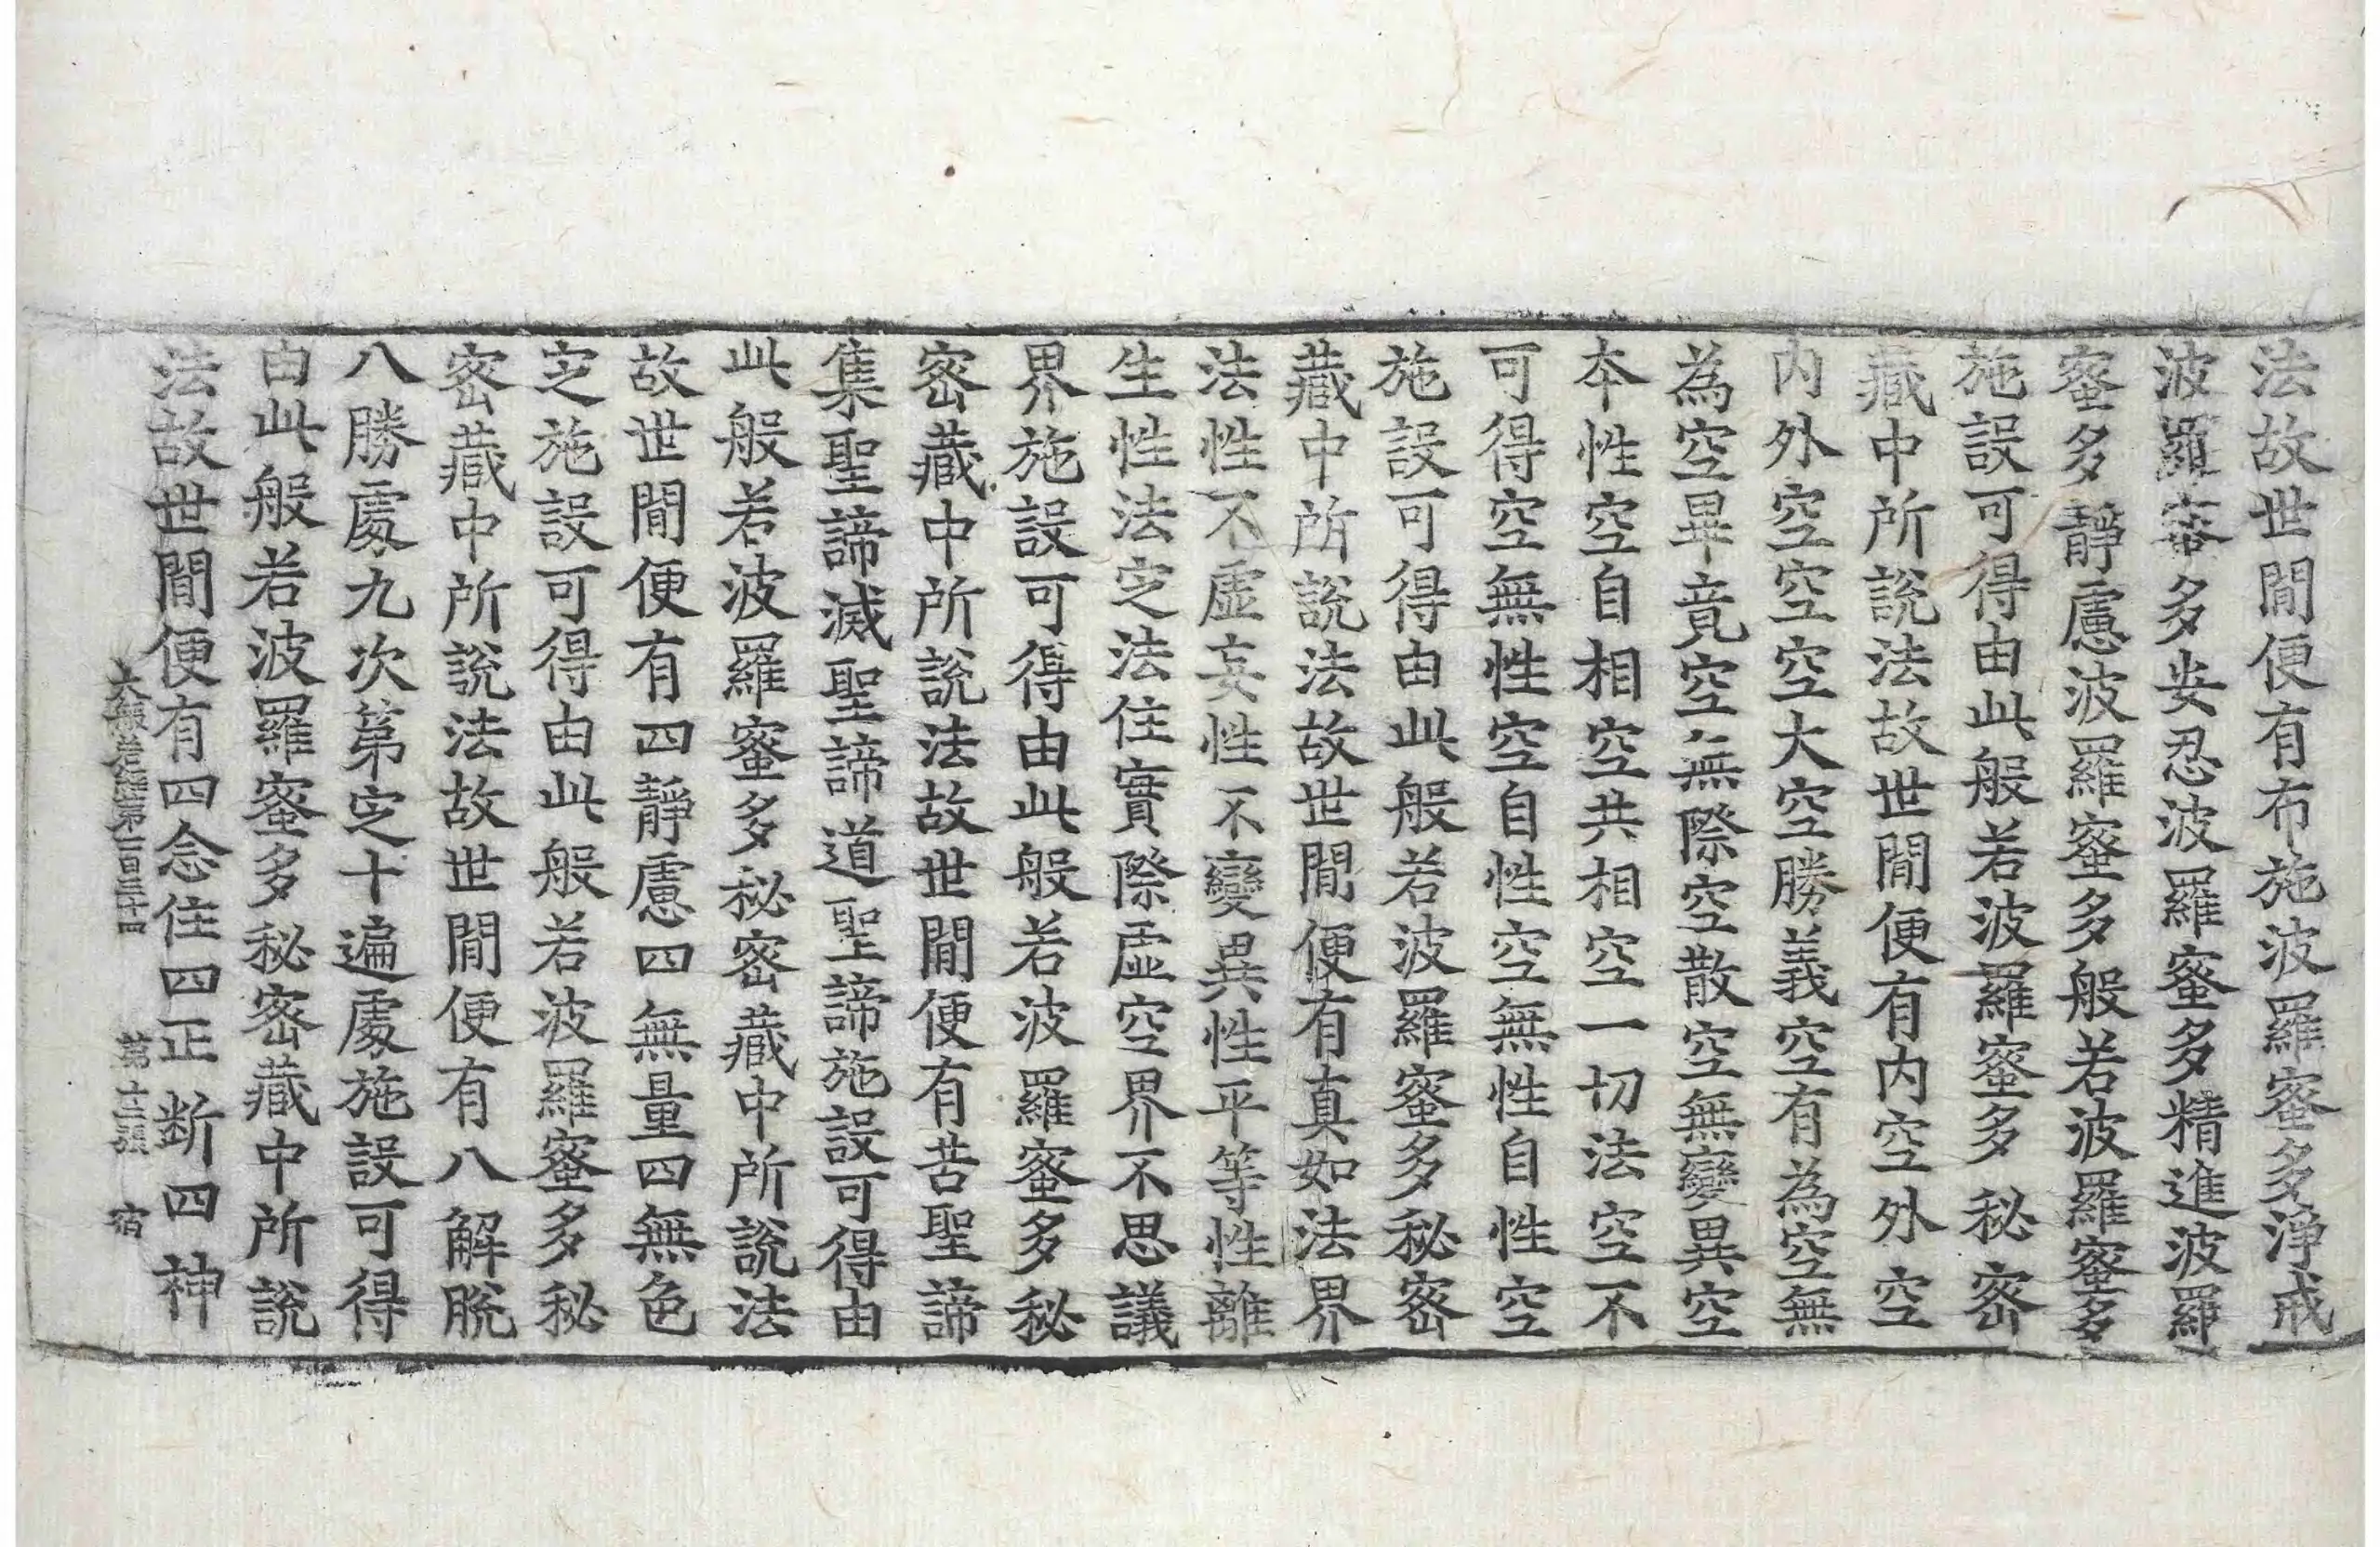 法故世間便有布施波羅蜜多淨戒
波羅蜜多安忍波羅蜜多精進波羅
蜜多靜慮波羅蜜多般若波羅蜜多
施設可得由此般若波羅蜜多秘密
藏中所說法故世間便有内空外空
内外空空空大空勝義空有為空無
為空畢竟空無際空散空無變異空
本性空自相空共相空一切法空不
可得空無性空自性空無性自性空
施設可得由此般若波羅蜜多秘密
藏中所說法故世間便有真如法界
法性不虛妄性不變異性平等性離
生性法定法住實際虛空界不思議
界施設可得由此般若波羅蜜多秘
密藏中所說法故世間便有苦聖諦
集聖諦滅聖諦道聖諦施設可得由
此般若波羅蜜多秘密藏中所說法
故世間便有四靜慮四無量四無色
定施設可得由此般若波羅蜜多秘
密藏中所說法故世間便有八解脫
八勝處九次第定十遍處施設可得
由此般若波羅蜜多秘密藏中所說
法故世間便有四念住四正斷四神
大般若經第一百三十四 第十三張 宿